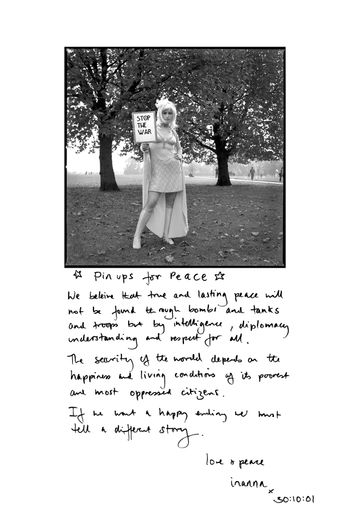 STOP
THE
WAR
☆ Pin ups for Peace ☆
We beleive that true and lasting peace will
not be found through bombs and tanks
and troops but by intelligence, diplomacy
understanding and respect for all.
The security of the world depends on the
happiness and living conditions of its poorest
and most oppressed citizens.
If we want a happy ending we must
tell a different story.
love & peace
inanna
x
30:10:01